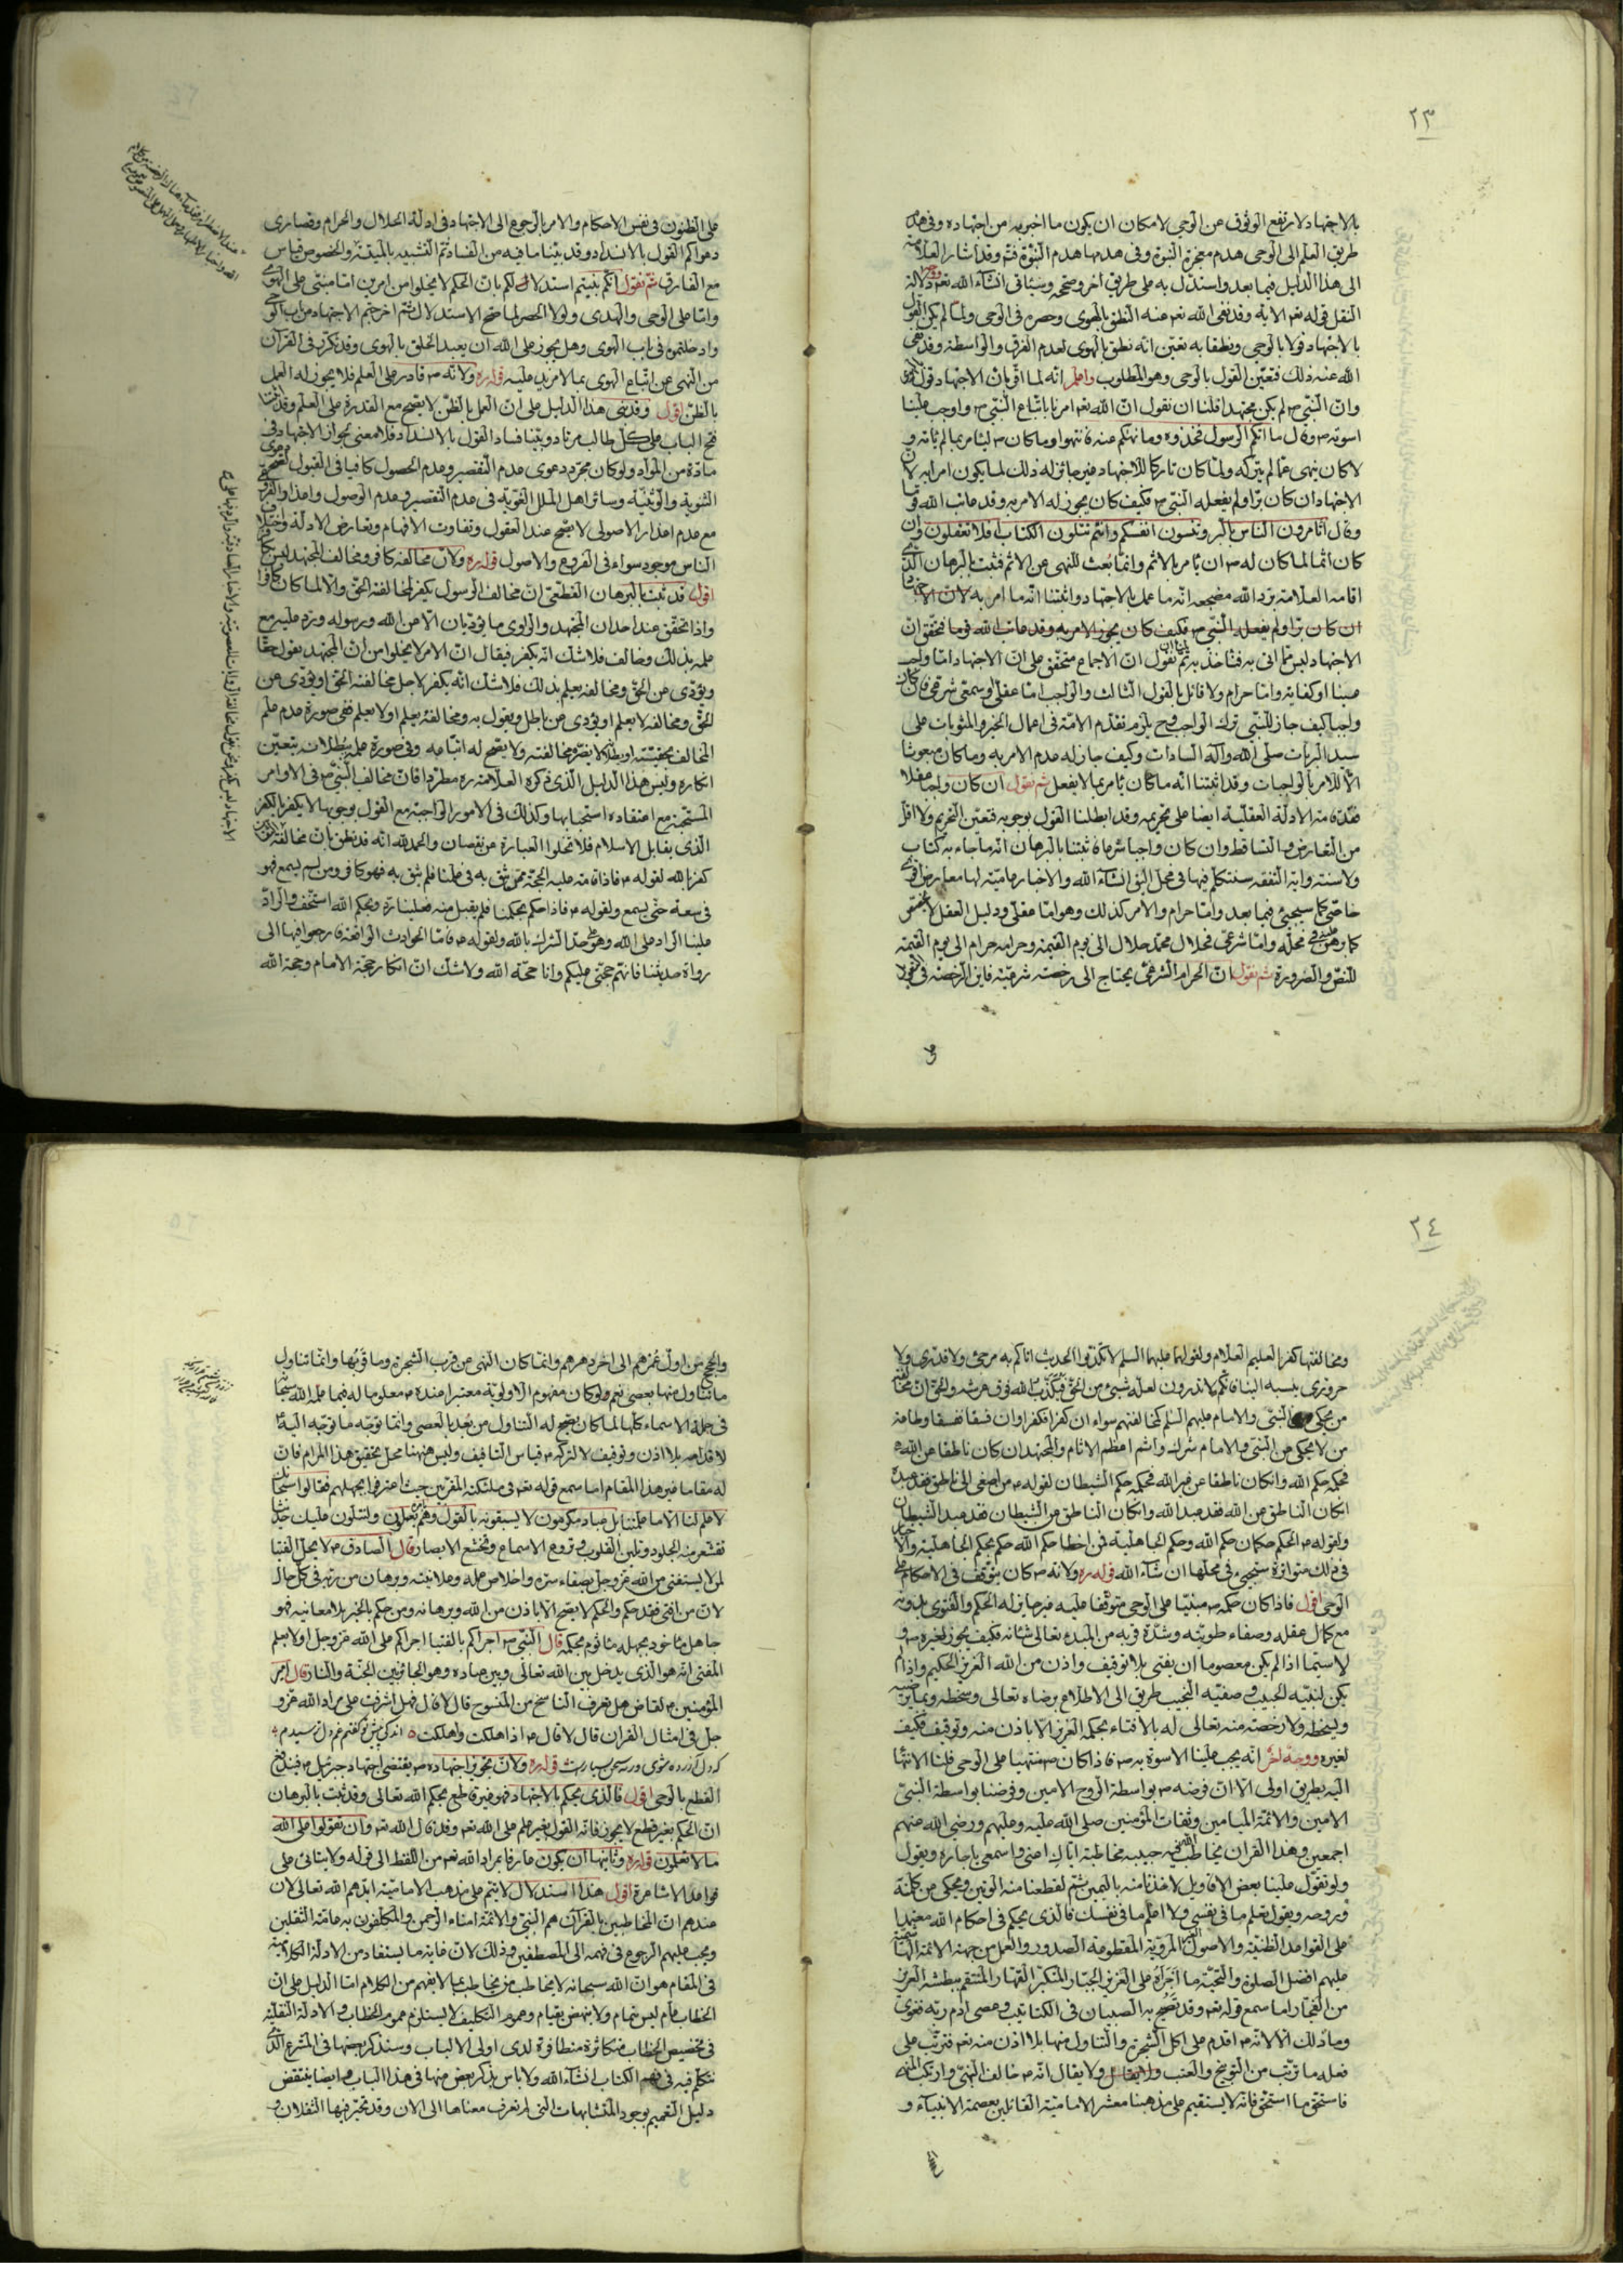 ٢٣
بالاجتهاد لارتفع الوثوق عن الوحى لامكان ان يكون ما اخبر به من اجتهاده وفى هدم
طريق العلم الى الوحى هدم معجزة النبوة وفى هدمها هدم النبوة فتم وقد اشار العلامة
الى هذا الدليل فيما بعد واستدل به على طريق اخر وصححه وسيأتى انشاء الله نعم دلالة
النقل قوله تعم الاية وقد نفى الله تعم عنه النطق بالهوى وحصره فى الوحى ولما لم يكن القول
بالاجتهاد قولا بالوحى ونطقا به تعين انه نطق بالهوى لعدم الفرق والواسطة وقد نفى
الله عنه ذلك فتعين القول بالوحى وهو المطلوب واعلم انه لما اقر بان الاجتهاد قول
وان النبى ص لم يكن مجتهدا فلنا ان نقول ان الله تعم امرنا باتباع النبى ص واوجب علينا
اسوته ص وقال ما اتيكم الرسول فخذوه وما نهيكم عنه فانتهوا وما كان ص ليأمر بما لم يأته و
لا كان ينهى عما لم يتركه ولما كان تاركا للاجتهاد فغير جائز له ذلك لما يكون امرا به لان
الاجتهاد ان كان برا ولم يفعله النبى ص فكيف كان يجوز له الامر به وقد عاتب الله قوما
وقال اتأمرون الناس بالبر وتنسون انفسكم وانتم تتلون الكتاب افلا تعقلون وان
كان اثما لما كان له ص ان يأمر بالاثم وانما بعث للنهى عن الاثم فثبت بالبرهان الذى
اقامه العلامة برد الله مضجعه انه ما عمل بالاجتهاد واثبتنا انه ما امر به لان الاجتهاد
ان كان برا ولم يفعله النبى ص فكيف كان يجوز الامر به وقد عاتب الله قوما فتحقق ان
الاجتهاد ليس مما اتى به فنأخذ به ثم نقول ان الاجماع متحقق على ان الاجتهاد اما واجب
عينا او كفاية واما حرام ولا قائل بالقول الثالث والواجب اما عقلى او سمعى شرعى فان كان
واجبا كيف جاز للنبى ترك الواجب وح يلزم تقدم الامة فى اعمال الخير والمثوبات على
سيد البريات صلى الله وآله السادات وكيف جاز له عدم الامر به وما كان مبعوثا
الا للامر بالواجبات وقد اثبتنا انه ما كان يأمر بما لا يفعل ثم نقول ان كان واجبا عقلا
فقد قامت الادلة العقلية ايضا على تحريمه وقد ابطلنا القول بوجوبه فتعين التحريم ولا اقل
من التعارض والتساقط وان كان واجبا شرعا فاثبتنا بالبرهان انه ما جاء به كتاب
ولا سنة واية التفقه سنتكلم فيها فى محل اليق انشاء الله والاخبار عامية لها معارض قوى
خاصى كما سيجيئ فيما بعد واما حرام والامر كذلك وهو اما عقلى ودليل العقل لا يتخصص
كما هو فى محله واما شرعى فحلال محمد حلال الى يوم القيمة وحرامه حرام الى يوم القيمة
للنص والضرورة ثم نقول ان الحرام الشرعى يحتاج الى رخصة شرعية فاين الرخصة فى
على الظنون فى نفس الاحكام والامر بالرجوع الى الاجتهاد فى ادلة الحلال والحرام وقصارى
دعواكم القول بالانسداد وقد بينا ما فيه من الفساد ثم التشبيه بالميتة والخصوص قياس
مع الفارق ثم نقول انكم بنيتم استدلالكم بان الحكم لا يخلوا من امرين اما مبنى على الهوى
واما على الوحى والهدى ولولا الحصر لما صح الاستدلال ثم اخرجتم الاجتهاد من باب الوحى
وادخلتموه فى باب الهوى وهل يجوز على الله ان يعبد الخلق بالهوى وقد تكرر فى القرآن
من النهى عن اتباع الهوى بما لا مزيد عليه قوله ره ولانه ص قادر على العلم فلا يجوز له العمل
بالظن اقول وقد بنى هذا الدليل على ان العمل بالظن لا يصح مع القدرة على العلم وقد
فتح الباب على كل طالب مرتاد وبينا فساد القول بالانسداد فلا معنى لجواز الاجتهاد فى
مادة من المواد ولو كان مجرد دعوى عدم التقصير وعدم الحصول كافيا فى القبول لصح دعوى
الثنوية والوثنية وسائر اهل الملل الغوية فى عدم التقصير وعدم الوصول واعذار الفروع
مع عدم اعذار الاصولى لا يصح عند العقول وتفاوت الافهام وتعارض الادلة واختلاف
الناس موجود سواء فى الفروع والاصول قوله ره ولان مخالفه كافر ومخالف المجتهد ليس
اقول قد ثبت بالبرهان القطعى ان مخالف الرسول يكفر لمخالفته الحق والا لما كان كافرا
واذا تحقق عند احد ان المجتهد والراوى ما يؤديان الا من الله ورسوله ورد عليه مع
علمه بذلك وخالف فلا شك انه يكفر فيقال ان الامر لا يخلوا من ان المجتهد يقول حقا
ويؤدى عن الحق ومخالفه يعلم بذلك فلا شك انه يكفر لاجل مخالفته الحق او يؤدى عن
الحق ومخالفه لا يعلم او يؤدى عن باطل ويقول به ومخالفه يعلم او لا يعلم ففى صورة عدم علم
المخالف بحقيته او بطلانه لا يضره مخالفته ولا يصح له اتباعه وفى صورة علمه ببطلانه يتعين
انكاره وليس هذا الدليل الذى ذكره العلامة ره مطردا فان مخالف النبى ص فى الاوامر
المستحبة مع اعتقاده استحبابها وكذلك فى الامور الواجبة مع القول بوجوبها لا يكفر بالكفر
الذى يقابل الاسلام فلا تخلوا العبارة من نقصان والحمد لله انه قد نطق بان مخالفة
كفر بالله لقوله ص فاذا قامت عليه الحجة ممن يثق به فى علمنا فلم يثق به فهو كافر ومن لم يسمع فهو
فى سعة حتى يسمع ولقوله ص فاذا حكم بحكمنا فلم يقبل منه فعلينا رد وبحكم الله استخف والراد
علينا الراد على الله وهو على حد الشرك بالله ولقوله ص فاما الحوادث الواقعة فارجعوا فيها الى
رواة حديثنا فانهم حجتى عليكم وانا حجة الله ولا شك ان انكار حجة الامام وحجة الله
٢٤
ومخالفتها كفر بالعليم العلام ولقولهما عليهما السلم لا تكذبوا الحديث اتاكم به مرجئى ولا قدرى ولا
حرورى ينسبه الينا فانكم لا تدرون لعله شيئ من الحق فيكذب الله فوق عرشه والحق ان مخالفة
من يحكى عن النبى والامام عليهم السلم كمخالفتهم سواء ان كفرا فكفرا وان فسقا ففسقا وطاعة
من لا يحكى عن النبى والامام شرك واثم اعظم الاثام والمجتهد ان كان ناطقا عن الله
فحكمه حكم الله وان كان ناطقا عن غير الله فحكمه حكم الشيطان لقوله ص من اصغى الى ناطق فقد عبده
انكان الناطق عن الله فقد عبد الله وان كان الناطق عن الشيطان فقد عبد الشيطان
ولقوله ص الحكم حكمان حكم الله وحكم الجاهلية فمن اخطا حكم الله حكم بحكم الجاهلية والاخبار
فى ذلك متواترة سيجئ فى محلها ان شاء الله قوله ره ولانه ص كان يتوقف فى الاحكام على
الوحى اقول فاذا كان حكمه ص مبنيا على الوحى متوقفا عليه غير جايز له الحكم والفتوى بدونه
مع كمال عقله وصفاء طويته وشدة قربه من المبدء تعالى شأنه فكيف يجوز لغيره ص و
لا سيما اذا لم يكن معصوما ان يفتى بلا توقيف واذن من الله العزيز الحكيم واذا لم
يكن لنبيه الحبيب وصفيه النجيب طريق الى الاطلاع برضاه تعالى وسخطه وبما يرضيه
ويسخطه ولا رخصة منه تعالى له بالافتاء بحكمه العزيز الا باذن منه وتوقيف فكيف
لغيره ووجه اخر انه يجب علينا الاسوة به ص فاذا كان ص منتهيا على الوحى فلنا الانتهاء
اليه بطريق اولى الا ان فوضه ص بواسطة الروح الامين وفوضنا بواسطة النبى
الامين والائمة الميامين وثقات المؤمنين صلى الله عليه وعليهم ورضى الله عنهم
اجمعين وهذا القران يخاطب الله فيه حبيبه مخاطبة اياك اعنى واسمعى يا جاره ويقول
ولو تقول علينا بعض الاقاويل لاخذنا منه باليمين ثم لقطعنا منه الوتين ويحكى عن كلمته
وروحه ويقول تعلم ما فى نفسى ولا اعلم ما فى نفسك فالذى يحكم فى احكام الله معتمدا
على القواعد الظنية والاصول الغير المروية المقطوعة الصدور والعمل من جهة الائمة
عليهم افضل الصلوة والتحية ما اجرأه على العزيز الجبار المتكبر القهار المنتقم ببطشه العزيز
من الفجار اما سمع قوله تعم وقد تصيح به الصبيان فى الكتاتيب وعصى ادم ربه فغوى
وما ذلك الا لانه ص اقدم على اكل الشجرة والتناول منها بلا اذن منه تعم فترتب على
فعله ما ترتب من التوبيخ والعتب ولا يقال انه ص خالف النهى وارتكب المنهى
فاستحق ما استحق فانه لا يستقيم على مذهبنا معشر الامامية القائلين بعصمة الانبياء و
والحجج من اول عمرهم الى اخر دهرهم وانما كان النهى عن قرب الشجرة وما قربها وانما تناول
ما تناول منها بعصى نعم ولو كان مفهوم الاولوية معتبرا عنده ص معلوما له فيما علمه الله سبحانه
فى جملة الاسماء كلها لما كان يصح له التناول من بعد بالعصى وانما توجه ما توجه اليه
لاقدامه بلا اذن وتوقيف لا لتركه ص قياس التأفيف وليس ههنا محل تحقيق هذا المرام فان
له مقاما غير هذا المقام اما سمع قوله تعم فى ملئكته المقربين حيث اعترفوا بجهلهم فقالوا سبحانك
لا علم لنا الا ما علمتنا بل عباد مكرمون لا يسبقونه بالقول وهم بامره يعملون ولنتلون عليك حديثا
تقشعر منه الجلود وتلين القلوب وتروع الاسماع وتخشع الابصار قال الصادق ص لا يحل الفتيا
لمن لا يستفتى من الله عز وجل بصفاء سره واخلاص عمله وعلانيته وبرهان من ربه فى كل حال
لان من افتى فقد حكم والحكم لا يصح الا باذن من الله وبرهانه ومن حكم بالخبر بلا معاينة فهو
جاهل مأخوذ بجهله مأثوم بحكمه قال النبى ص اجرأكم بالفتيا اجرأكم على الله عز وجل اولا يعلم
المفتى انه هو الذى يدخل بين الله تعالى وبين عباده وهو الحائر بين الجنة والنار قال امير
المؤمنين ص لقاض هل تعرف الناسخ من المنسوخ قال لا قال فهل اشرفت على مراد الله عز و
جل فى امثال القران قال لا قال ص اذا هلكت واهلكت اندكى پيش تو گفتم غم دل ترسيدم
كه دل آزرده شوى ورنه سخن بسيارست قوله ره ولان تجويز اجتهاده ص يقتضى اجتهاد جبرئيل ص فيندفع
القطع بالوحى اقول فالذى يحكم بالاجتهاد فهو غير قاطع بحكم الله تعالى وقد ثبت بالبرهان
ان الحكم بغير قطع لا يجوز فانه القول بغير علم على الله تعم وقد قال الله تعم وان تقولوا على الله
ما لا تعلمون قوله ره وثانيها ان يكون عارفا بمراد الله تعم من اللفظ الى قوله ولا يتأتى على
قواعد الاشاعرة اقول هذا استدلال لا يتم على مذهب الامامية ايدهم الله تعالى لان
عندهم ان المخاطبين بالقرآن هم النبى والائمة امناء الرحمن والمكلفون به عامة الثقلين
ويجب عليهم الرجوع فى فهمه الى المصطفين وذلك لان غاية ما يستفاد من الادلة الكلامية
فى المقام هو ان الله سبحانه لا يخاطب من يخاطب بما لا يفهم من الكلام اما الدليل على ان
الخطاب عام ليس بتمام ولا ينهض بقيام وعموم التكليف لا يستلزم عموم الخطاب والادلة النقلية
فى تخصيص الخطاب متكاثرة متظافرة لدى اولى الالباب وسنذكر بعضها فى الشرع الذى
نتكلم فيه فى فهم الكتاب انشاء الله ولا باس بذكر بعض منها فى هذا الباب ايضا ينتقض
دليل التعميم بوجود المتشابهات التى لم نعرف معناها الى الان وقد تحير فيها الثقلان و